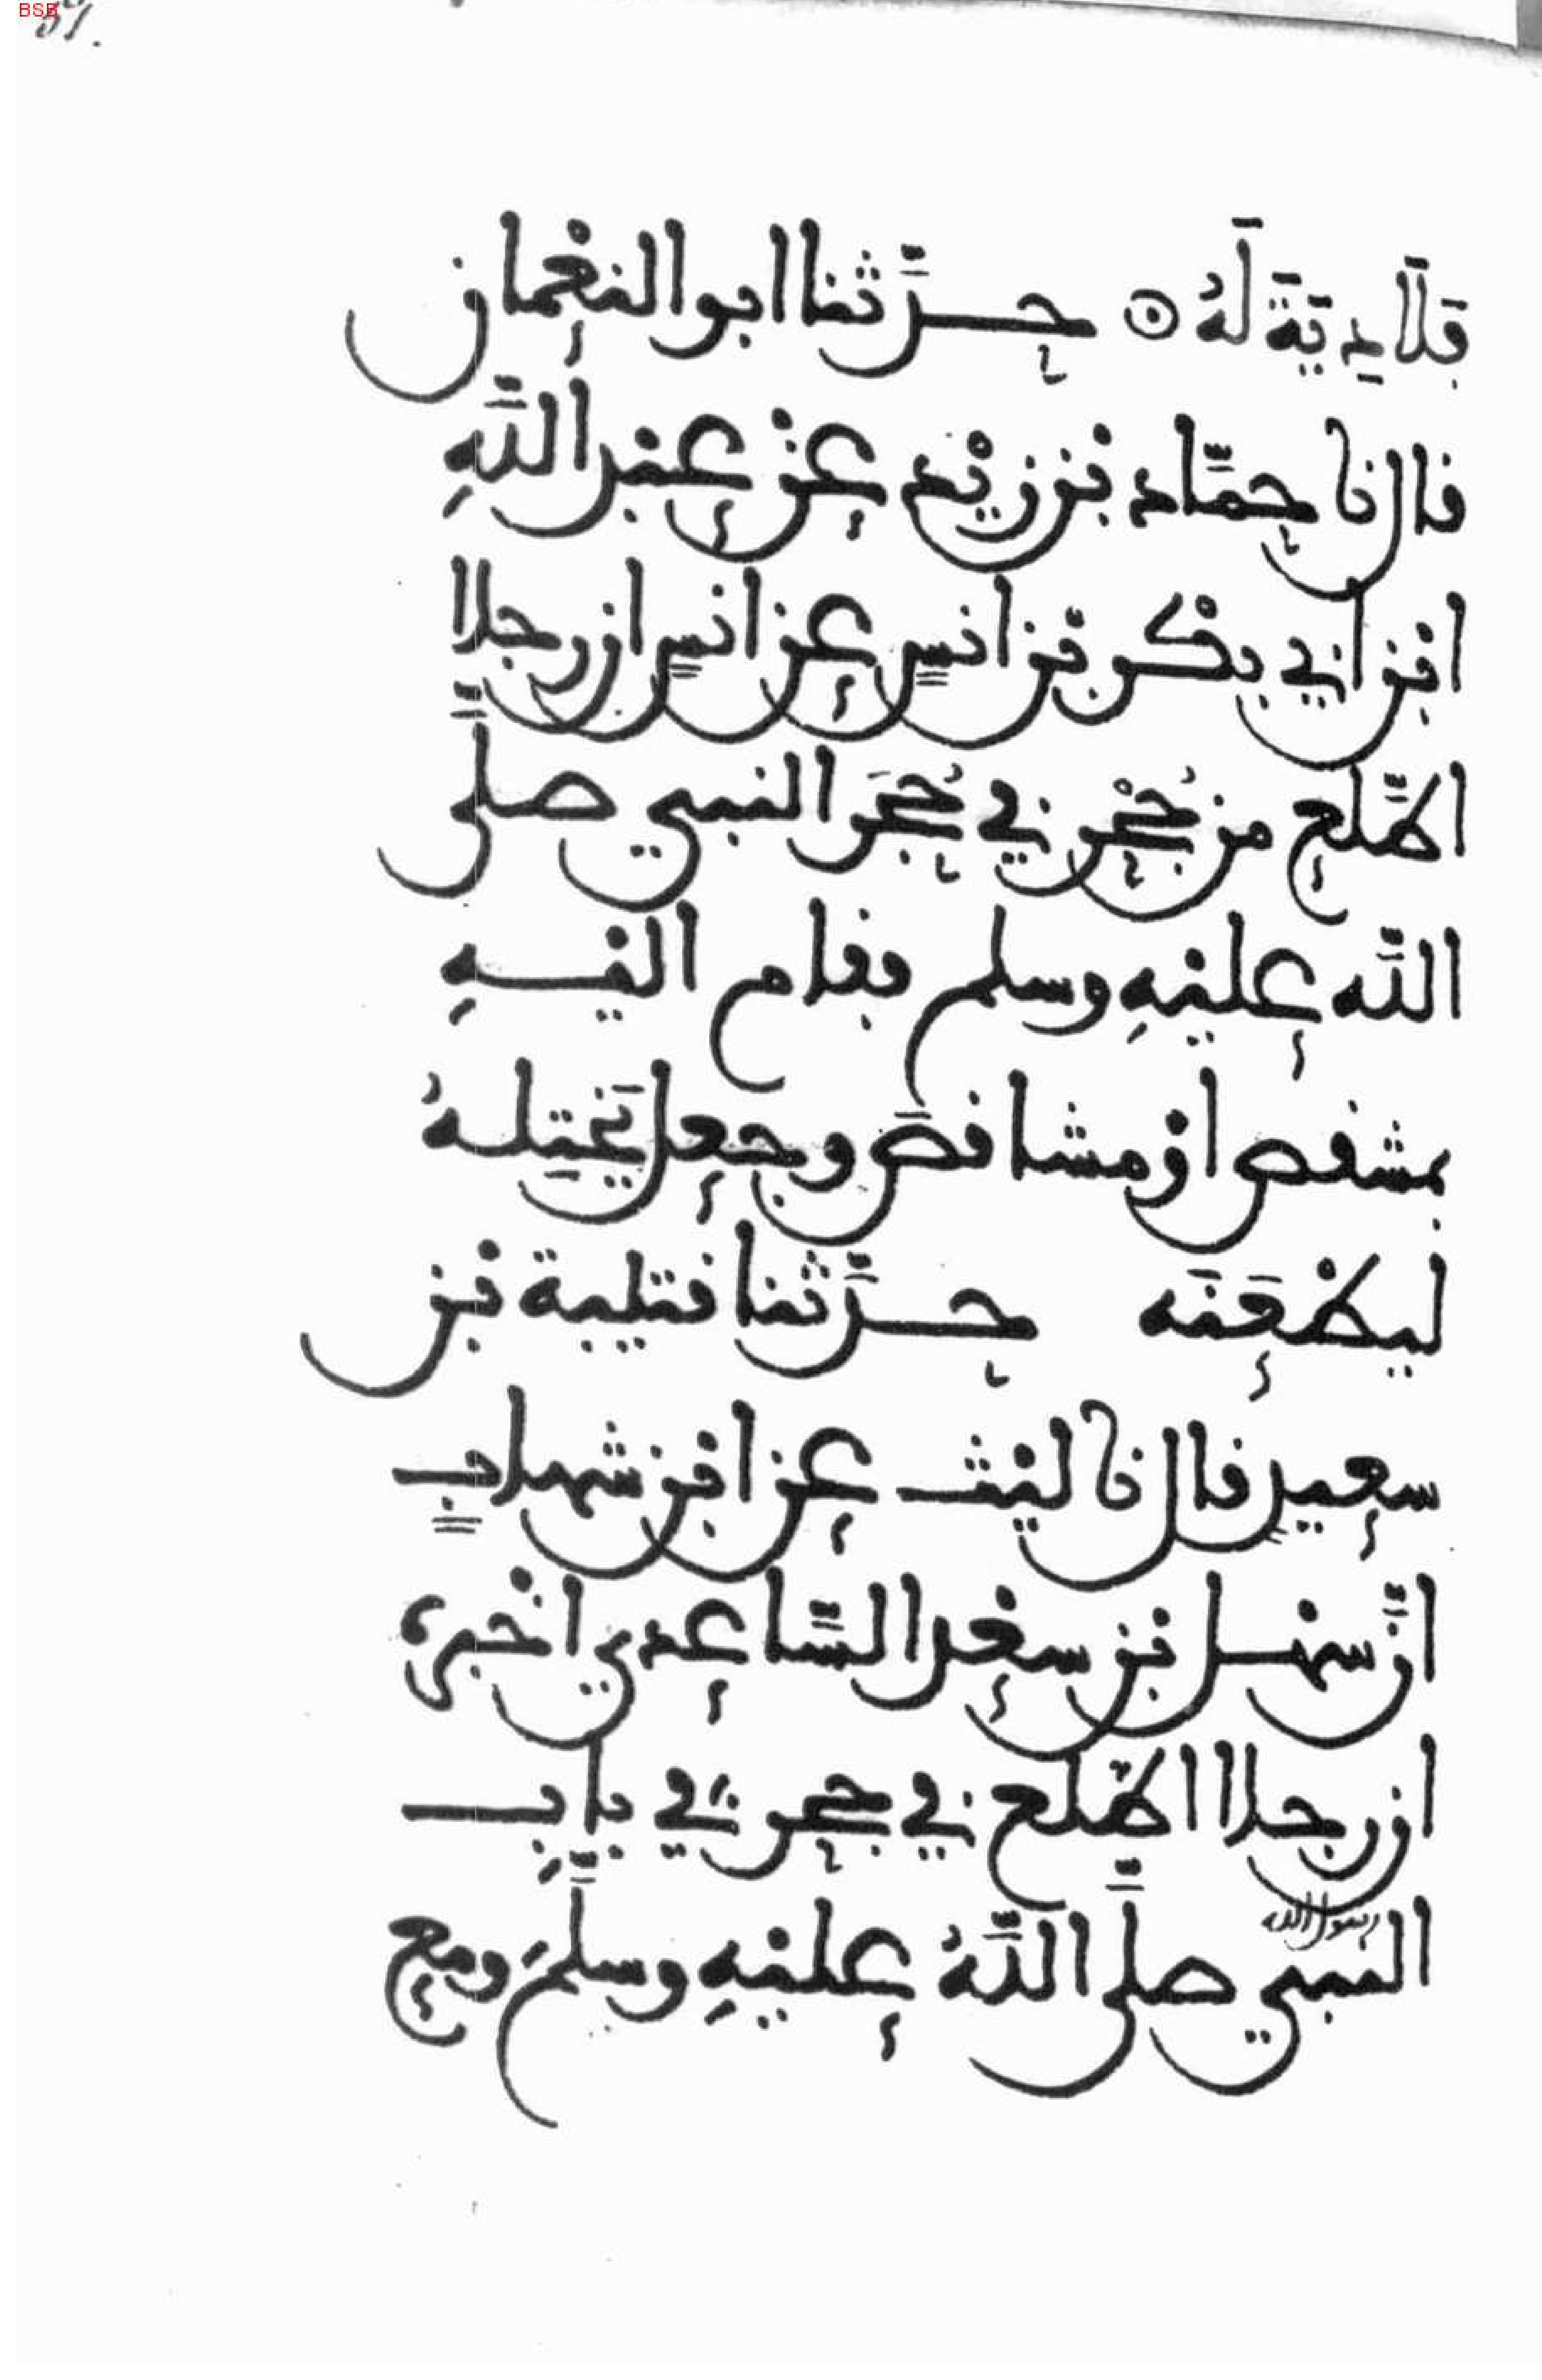 فَلَا دِيَةَ لَهُ ۞ حدَّثنا ابو النعْمان
قال نا حمَّاد بن زيْد عنْ عبيد اللَّهِ
ابن ابي بكر بن انسٍ عن انسٍ ان رجلا
اطَّلع من جُحْر في حُجَر النبي صلَّى
اللَّه عليْهِ وسلم فقام اليْهِ
بمشقص اوْ مشاقصَ وجعل يَخْتِلهُ
ليطْعَنَه حدَّثنا قتيبة بن
سعيد قال نا ليْث عن ابن شهابٍ
انَّ سهْل بن سعْد السَّاعدي اخْبره
ان رجلا اطَّلع في جحر في بابِ
رسول الله
النبي صلَّى اللَّهُ عليْهِ وسلَّمَ ومع